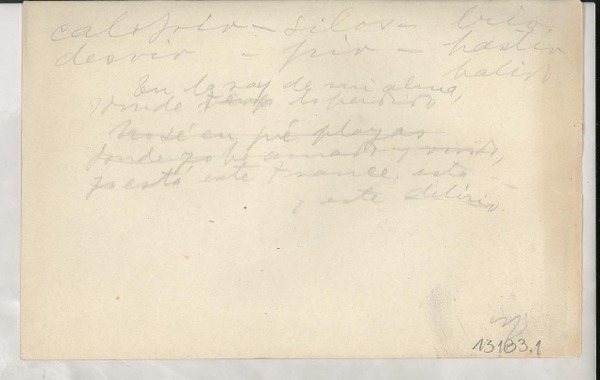 calofrío - silos - brío
desvío - pío - hastío
balido
En la ray de mi alma,
donde tengo lo perdido
No sé en qué playas
donde yo he amado y vivido,
ya está este trance, esto
y este delirio
13183.1